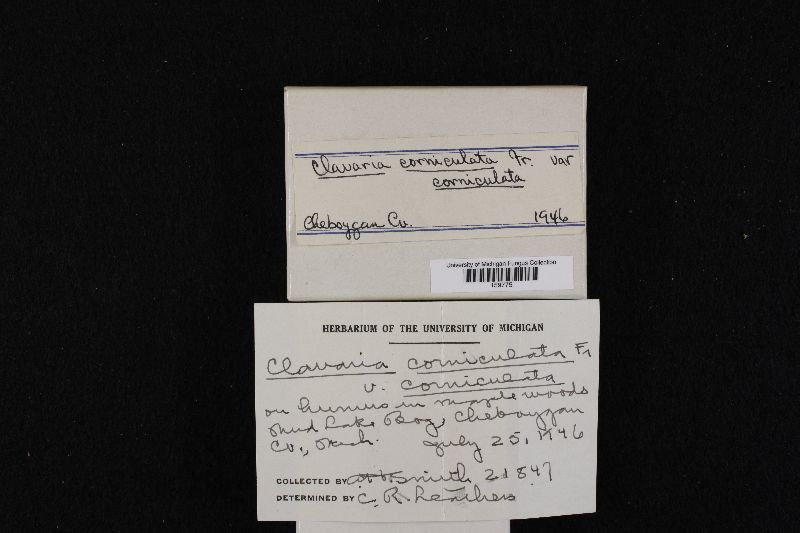 Clavaria corniculata Fr. var
corniculata
Cheboygan Co. 1946
University of Michigan Fungus Collection
HERBARIUM OF THE UNIVERSITY OF MICHIGAN
Clavaria corniculata Fr
v. corniculata
on humus in maple woods
Mud Lake Bog, Cheboygan
Co., Mich. July 25, 1946
COLLECTED BY Smith 21847
DETERMINED BY C. R. Leathers